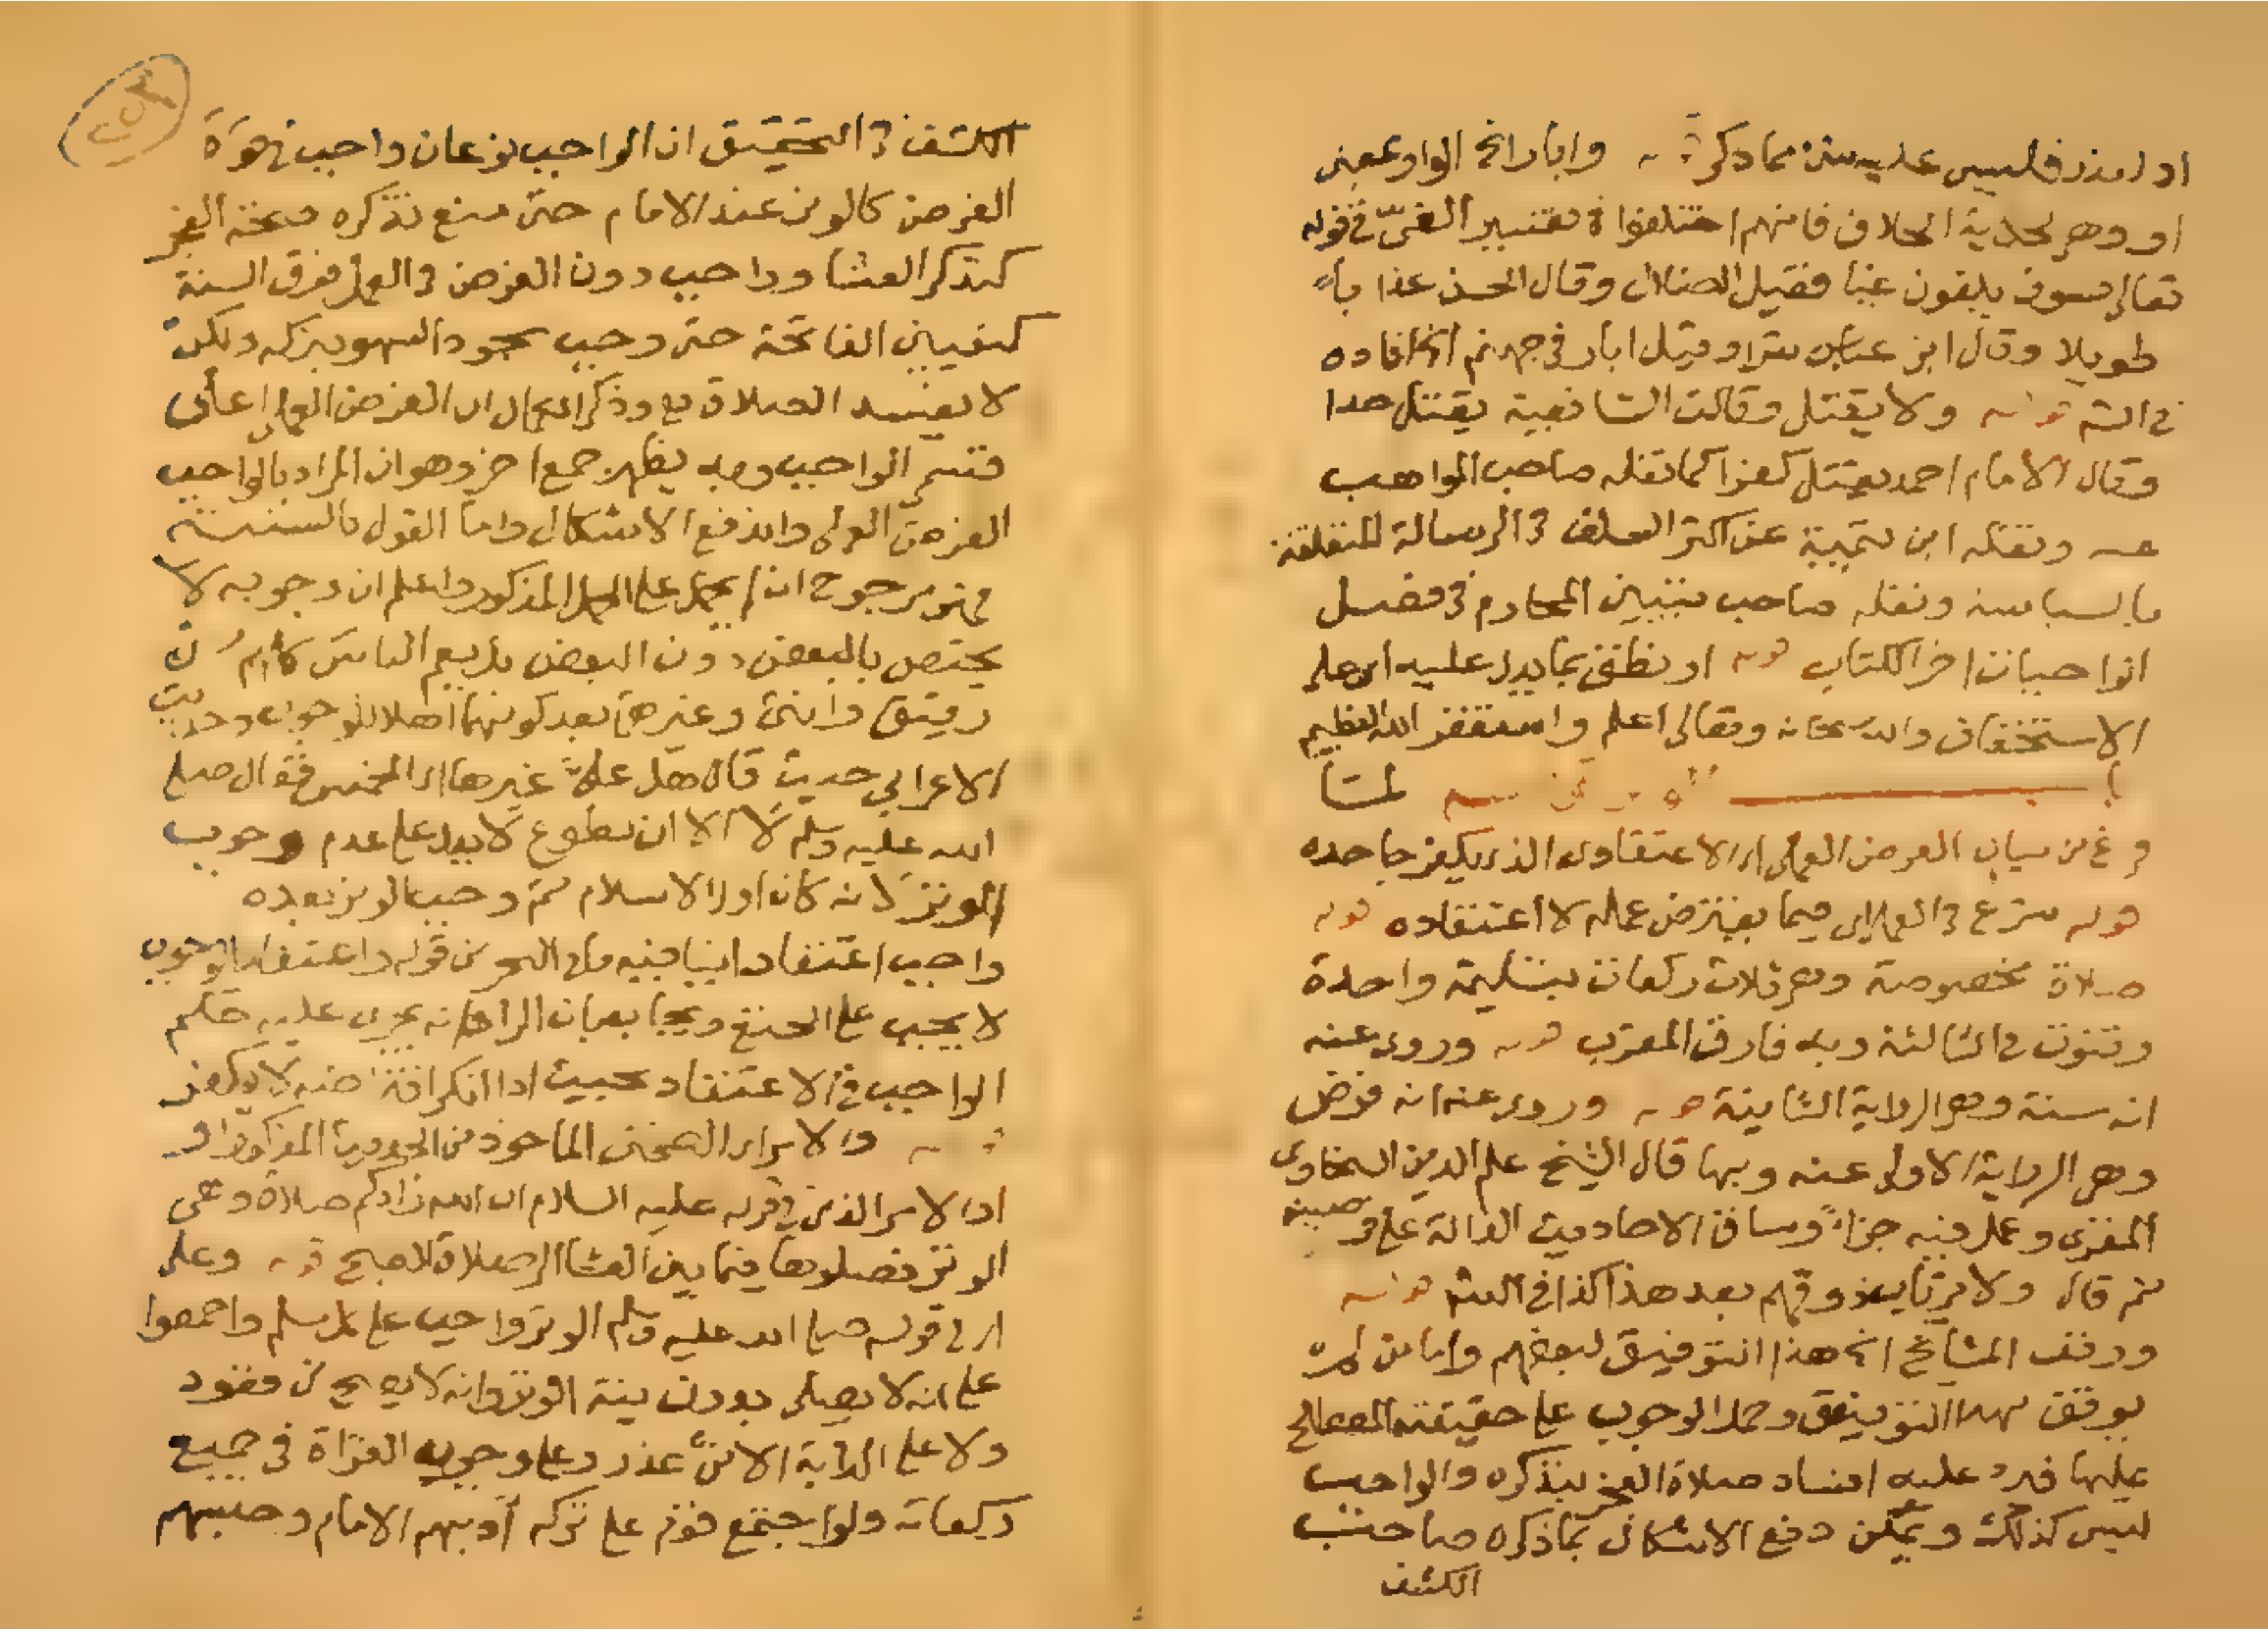 او لعذر فليس عليه شئ مما ذكر قوله وابار الخ الواو بمعنى
او وهو لحكاية الخلاف فانهم اختلفوا في تفسير الغي في قوله
تعالى فسوف يلقون غيا فقيل الضلال وقال الحسن عذابا
طويلا وقال ابن عباس شرا وقيل ابار في جهنم الخ افاده
في الشر قوله ولا يقتل وقالت الشافعية يقتل حدا
وقال الامام احمد يقتل كفرا كما نقله صاحب المواهب
عنه ونقله ابن تيمية عن اكثر السلف في الرسالة المتعلقة
بالسياسة ونقله صاحب تبيين المحارم في فصل
الواجبات اخر الكتاب قوله او نطق بما يدل عليه اي على
الاستخفاف والله سبحانه وتعالى اعلم واستغفر الله العظيم
باب الوتر قوله لما
فرغ من بيان الفرض العملي اي الاعتقادي الذي يكفر جاحده
قوله شرع في العملي اي فيما يفترض عمله لا اعتقاده قوله
صلاة مخصوصة وهي ثلاث ركعات بتسليمة واحدة
وقنوت في الثالثة وبه فارق المغرب قوله وروي عنه
انه سنة وهو الرواية الثانية قوله وروي عنه انه فرض
وهي الرواية الاولى عنه وبها قال الشيخ علم الدين السخاوي
المقري وعمل فيه جزاء وساق الاحاديث الدالة على فرضيته
ثم قال ولا يرتاب ذو فهم بعد هذا كذا في الشر قوله
ووفق المشايخ الخ هذا التوفيق لبعضهم واما من لم
يوفق بهذا التوفيق وحمل الوجوب على حقيقته المصطلح
عليها فيرد عليه افساد صلاة الفجر بتذكره والواجب
ليس كذلك ويمكن دفع الاشكال بما ذكره صاحب
الكشف
الكشف في التحقيق ان الواجب نوعان واجب في قوة
الفرض كالوتر عند الامام حتى منع تذكره صحة الفجر
كتذكر العشاء وواجب دون الفرض في العمل فوق السنة
كتعيين الفاتحة حتى وجب سجود السهو بتركه ولكن
لا يفسد الصلاة وذكر الكمال ان الفرض العملي اعلى
قسمي الواجب وبه يظهر جمع اخر وهو ان المراد بالواجب
الفرض العملي واندفع الاشكال واما القول بالسنية
فهو مرجوح ان لم يحمل على الحمل المذكور واعلم ان وجوبه لا
يختص بالبعض دون البعض بل يعم الناس
رقيق وانثى وغيرهما بعد كونهما اهلا للوجوب وحديث
الاعرابي حديث قال هل علي غيرها اي الخمس فقال صلى
الله عليه وسلم لا الا ان تطوع لا يدل على عدم وجوب
الوتر لانه كان اول الاسلام ثم وجب الوتر بعده
واجب اعتقادا ينافيه ما في البحر من قوله واعتقاد الوجوب
لا يجب على الحنفي ويجاب بان المراد انه يجري عليه حكم
الواجب في الاعتقاد بحيث اذا انكر افتراضه لا يكفر
قوله والامر اي الضمني الماخوذ من الحديث المذكور او
اي الامر الذي في قوله عليه السلام ان الله زادكم صلاة وهي
الوتر فصلوها فيما بين العشاء الى صلاة الصبح قوله وعلى
اي في قوله صلى الله عليه وسلم الوتر واجب على كل مسلم واجمعوا
على انه لا يصلى بدون نية الوتر وانه لا يصح من قعود
ولا على الدابة الا من عذر وعلى وجوب القراة في جميع
ركعاته ولو اجتمع قوم على تركه ادبهم الامام وحبسهم